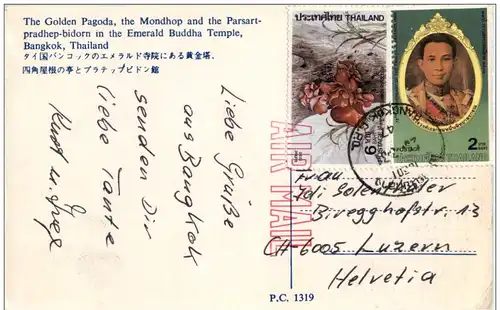 The Golden Pagoda, the Mondhop and the Parsart-
pradhep-bidorn in the Emerald Buddha Temple,
Bangkok, Thailand
タイ国バンコックのエメラルド寺院にある黄金塔、
四角屋根の亭とプラテップビドン館
Liebe Grüße
aus Bangkok
senden Dir
liebe Tante
Kurt u.
ประเทศไทย THAILAND
9
2
THAILAND
BANGKOK G.P.O.
AIR MAIL
Frau
Biregghofstr. 13
CH 6005 Luzern
Helvetia
P.C. 1319